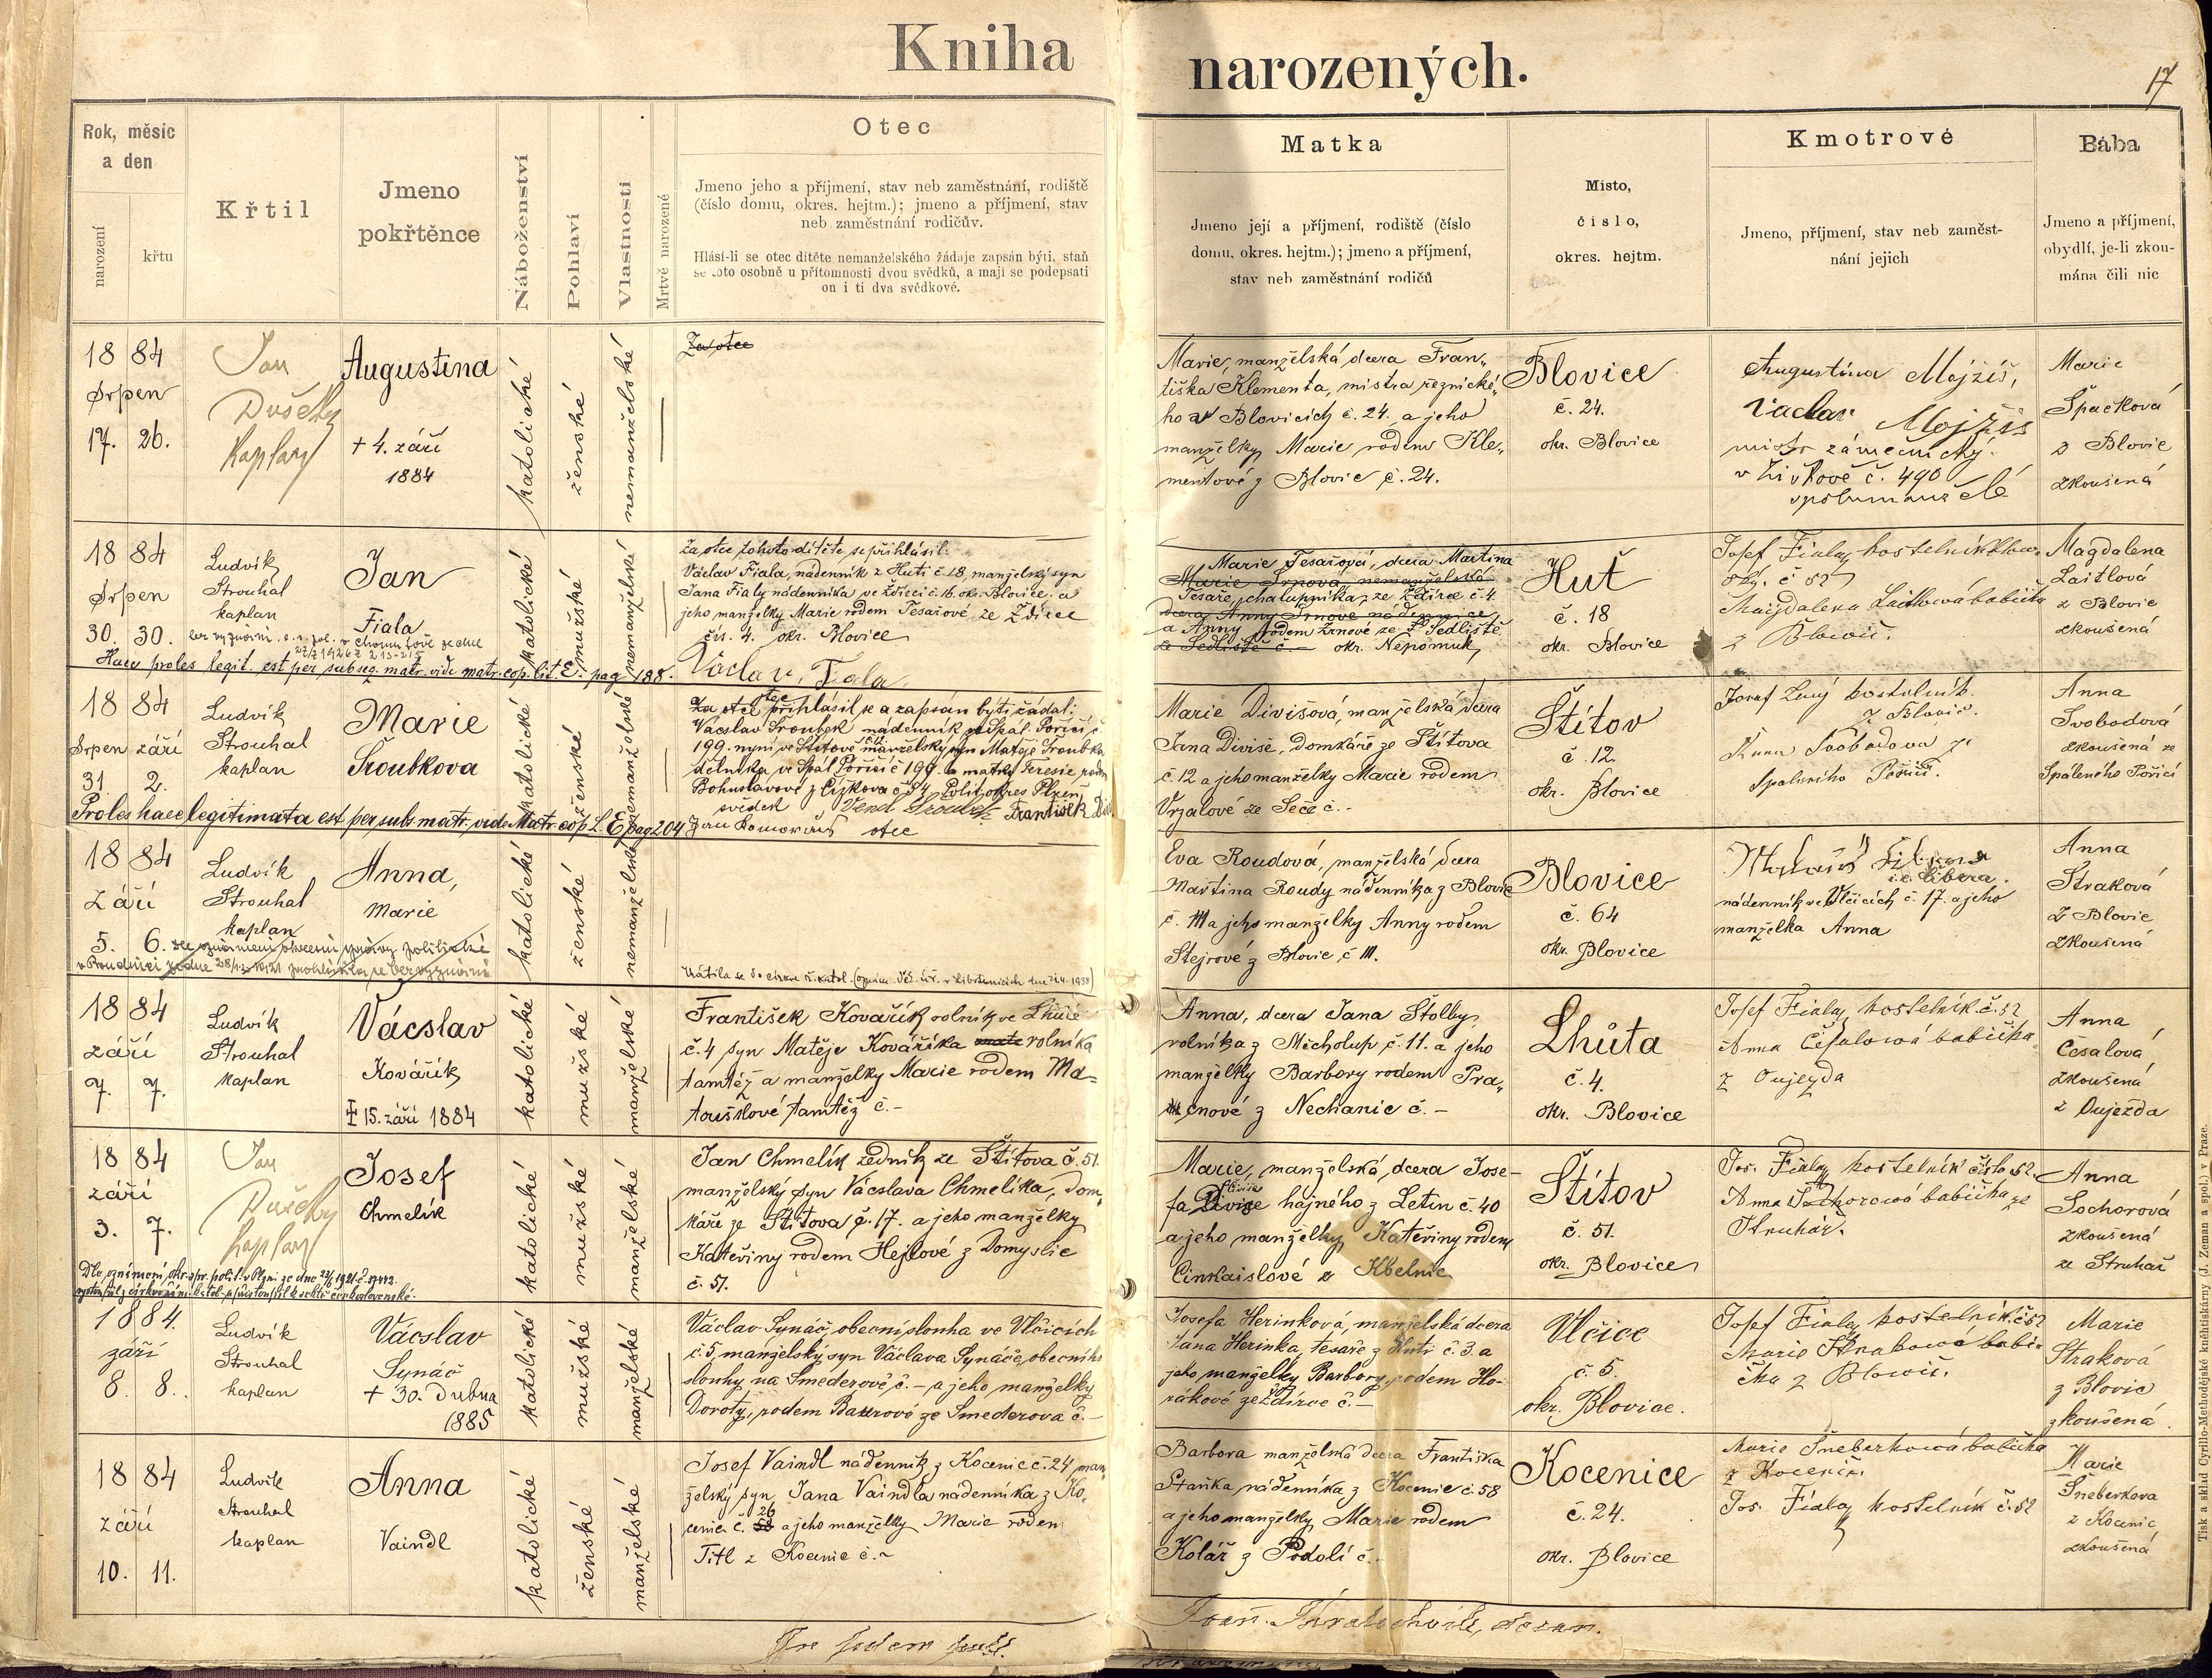 Kniha narozených.
17
Rok, měsíc
a den
narození
křtu
Křtil
Jmeno
pokřtěnce
Náboženství
Pohlaví
Vlastnosti
Mrtvě narozené
Otec
Jmeno jeho a příjmení, stav neb zaměstnání, rodiště
(číslo domu, okres. hejtm.); jmeno a příjmení, stav
neb zaměstnání rodičův.
Hlásí-li se otec dítěte nemanželského žádaje zapsán býti, staň
se toto osobně u přítomnosti dvou svědků, a mají se podepsati
on i ti dva svědkové.
Matka
Jmeno její a příjmení, rodiště (číslo
domu, okres. hejtm.); jmeno a příjmení,
stav neb zaměstnání rodičů
Místo,
číslo,
okres. hejtm.
Kmotrové
Jmeno, příjmení, stav neb zaměst-
nání jejich
Bába
Jmeno a příjmení,
obydlí, je-li zkou-
mána čili nic
1884
Srpen
17. 26.
Jan
Dušek
Kaplan
Augustina
+ 4. září
1884
katolické
ženské
nemanželské
Za otce
Marie, manželská dcera Fran„
tiška Klementa, mistra řeznické„
ho v Blovicích č. 24. a jeho
manželky Marie rodem Kle„
mentové z Blovic č. 24.
Blovice
č. 24.
okr. Blovice
Augustina Mojžíš,
Václav Mojžíš
mistr zámečnický
v Žižkově č. 490
spolumanželé
Marie
Špačková
z Blovic
zkoušená
1884
Srpen
30. 30.
Ludvík
Strouhal
kaplan
Jan
Fiala
katolické
mužské
nemanželské
Haec proles legit. est per subseq. matr. vide matr. cop. lit. E. pag. 188.
Za otce tohoto dítěte se přihlásil:
Václav Fiala, nádenník z Huti č 18, manželský syn
Jana Fialy nádenníka ve Ždírci č. 16. okr. Blovice. a
jeho manželky Marie rodem Tesařové, ze Ždírce
čís. 4. okr. Blovice
Václav Fiala
Marie Tesařová, dcera Martina
Marie Srnová, nemanželská
Tesaře, chalupníka, ze Ždírce č. 4.
dcera Anny Srnové nádennice
a Anny rodem Srnové ze Sedliště
ze Sedliště č. – okr. Nepomuk
Huť
č. 18
okr. Blovice
Josef Fiala kostelník
č 52
Magdalena Laitlová babička
z Blovic.
Magdalena
Laitlová
z Blovic
zkoušená
1884
Srpen září
31. 2.
Ludvík
Strouhal
kaplan
Marie
Šroubkova
katolické
ženské
nemanželské
Proles haec legitimata est per subs. matr. vide Matr. cop. L. E pag 204
Za otce přihlásil se a zapsán býti žádal:
Vácslav Šroubek nádenník ze Spál. Poříčí č
199. nyní ve Štítově č. 12 manželský syn Matěje Šroubka
dělníka ve Spál. Poříčí č 199. a matky Teresie rodem
Bohuslavové z Čížkova č 54, Polit. okres Plzeň
svědek
František
Jan Komorous otec
Marie Divišová, manželská dcera
Jana Diviše, domkáře ze Štítova
č. 12 a jeho manželky Marie rodem
Vrzalové ze Seče č. -
Štítov
č. 12.
okr. Blovice
kostelník
z Blovic.
Anna Svobodova ze
Spáleného Poříčí.
Anna
Svobodová
zkoušená ze
Spáleného Poříčí
1884
Září
5. 6.
Ludvík
Strouhal
kaplan
Anna,
Marie
katolické
ženské
nemanželské
Vrátila se do církve ř. katol.
Eva Roudová, manželská dcera
Martina Roudy nádenníka z Blovic
č. 111 a jeho manželky Anny rodem
Stejrové z Blovic č 111.
Blovice
č. 64
okr. Blovice
i.e. Libera.
nádenník ve Vlčicích č. 17. a jeho
manželka Anna
Anna
Straková
z Blovic
zkoušená
1884
září
7. 7.
Ludvík
Strouhal
kaplan
Vácslav
Kovářík
15. září 1884
katolické
mužské
manželské
František Kovářík rolník ve Lhůtě
č. 4 syn Matěje Kováříka mate rolníka
tamtéž a manželky Marie rodem Ma=
touškové tamtéž č. –
Anna, dcera Jana Štolby,
rolníka z Měcholup č. 11. a jeho
manželky Barbory rodem Pra„
cnové z Nechanic č. –
Lhůta
č. 4.
okr. Blovice
Josef Fiala kostelník. č. 52
Anna Česalová babička
z Oujezda
Anna
Česalová,
zkoušená
z Oujezda
1884
září
3. 7.
Jan
Dušek
kaplan
Josef
Chmelík
katolické
mužské
manželské
Jan Chmelík zedník ze Štítova č. 51.
manželský syn Vácslava Chmelíka, dom„
káře ze Štítova č. 17. a jeho manželky
Kateřiny rodem Hejlové z Domyslic
č. 51.
Marie, manželská dcera Jose-
fa Diviše hajného z Letin č. 40
a jeho manželky Kateřiny rodem
Cinkaislové z Kbelnic
Štítov
č. 51.
okr. Blovice
Jos. Fiala kostelník číslo 52
Anna Sochorová babička ze
Struhař.
Anna
Sochorová
zkoušená
ze Struhař
1884.
září
8. 8.
Ludvík
Strouhal
kaplan
Vácslav
Synáč
+ 30. dubna
1885
katolické
mužské
manželské
Václav Synáč, obecní sluha ve Vlčicích
č. 5, manželský syn Václava Synáče, obecního
sluhy na Smederově č. – a jeho manželky
Doroty, rodem Baurové ze Smederova č. –
Josefa Herinková, manželská dcera
Jana Herinka, tesaře z Huti č. 3. a
jeho manželky Barbory, rodem Ho-
rákové ze Ždírce č. –
Vlčice
č. 5.
okr. Blovice.
Josef Fiala kostelník. č. 52
Marie Straková babi-
čka z Blovic.
Marie
Straková
z Blovic
zkoušená.
1884
září
10. 11.
Ludvík
Strouhal
kaplan
Anna
Vaindl
katolické
ženské
manželské
Josef Vaindl nádenník z Kocenic č. 24 man„
želský syn Jana Vaindla nádenníka z Ko„
cenic č. 58 26 a jeho manželky Marie rodem
Titl z Kocenic č. –
Barbora manželská dcera Františka
Staňka nádenníka z Kocenic č. 58
a jeho manželky Marie rodem
Kolář z Podolí č. -
Kocenice
č. 24.
okr. Blovice
Marie Šneberková babička
z Kocenic.
Jos. Fiala kostelník č. 52
Marie
Šneberkova
z Kocenic
zkoušená
Fran. Kratochvíle, děkan.
Tisk a sklad Cyrillo-Methodějské kněhtiskárny (J. Zeman a spol.) v Praze.